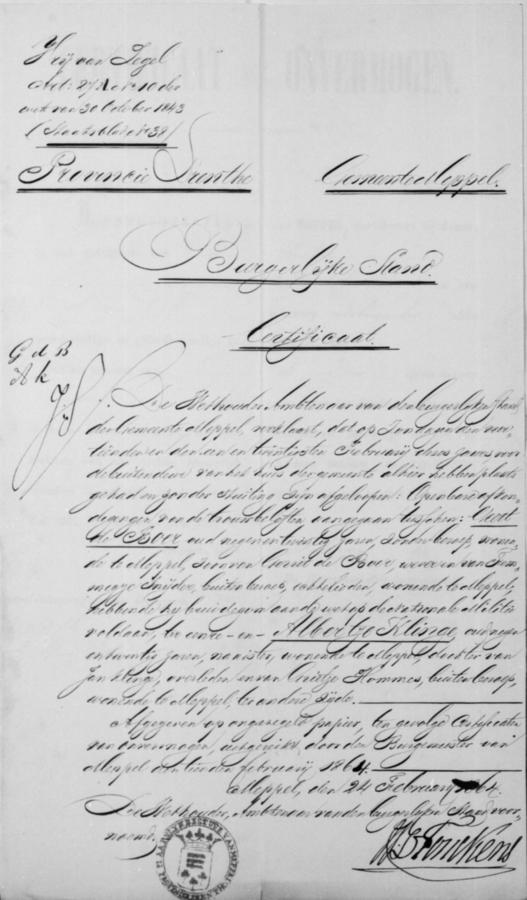 Vrij van Zegel
Art: 27A No 10 der
wet van 3 October 1843
(Staatsblad No 38)
Provincie Drenthe
Gemeente Meppel.
Burgerlijke Stand.
Certificaat.
G d B
A k
De Wethouder Ambtenaar van den burgerlijken stand
der Gemeente Meppel, verklaart, dat op Zondag den veer-
tienden en den een en twintigsten Februarij dezes jaars voor
de buitendeur van het huis der gemeente alhier hebben plaats
gehad en zonder stuiting zijn afgeloopen: Openbare afkon-
digingen van de trouwbeloften aangegaan tusschen: Geert
de Boer, oud negen en twintig jaren, zonder beroep, wonen-
de te Meppel, zoon van Gerrit de Boer, weduwnaar van Fem-
megje Snijder, buiten beroep, echtelieden, wonende te Meppel,
hebbende de bruidegom aan de wet op de nationale Militie
voldaan, ter eenre - en - Albertje Klinge, oud negen
en twintig jaren, naaister, wonende te Meppel, dochter van
Jan Klinge, overleden en van Grietje Hommes, buiten beroep,
wonende te Meppel, te andere zijde.
Afgegeven op ongezegeld papier, ten gevolge Certificaten
van onvermogen, uitgereikt door den Burgemeester van
Meppel den tienden februarij 1864
Meppel, den 24 Februarij 1864.
De Wethouder, Ambtenaar van den burgerlijken Stand voor-
noemd,